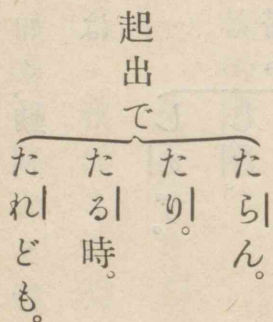 起出で
たらん。
たり。
たる時。
たれども。